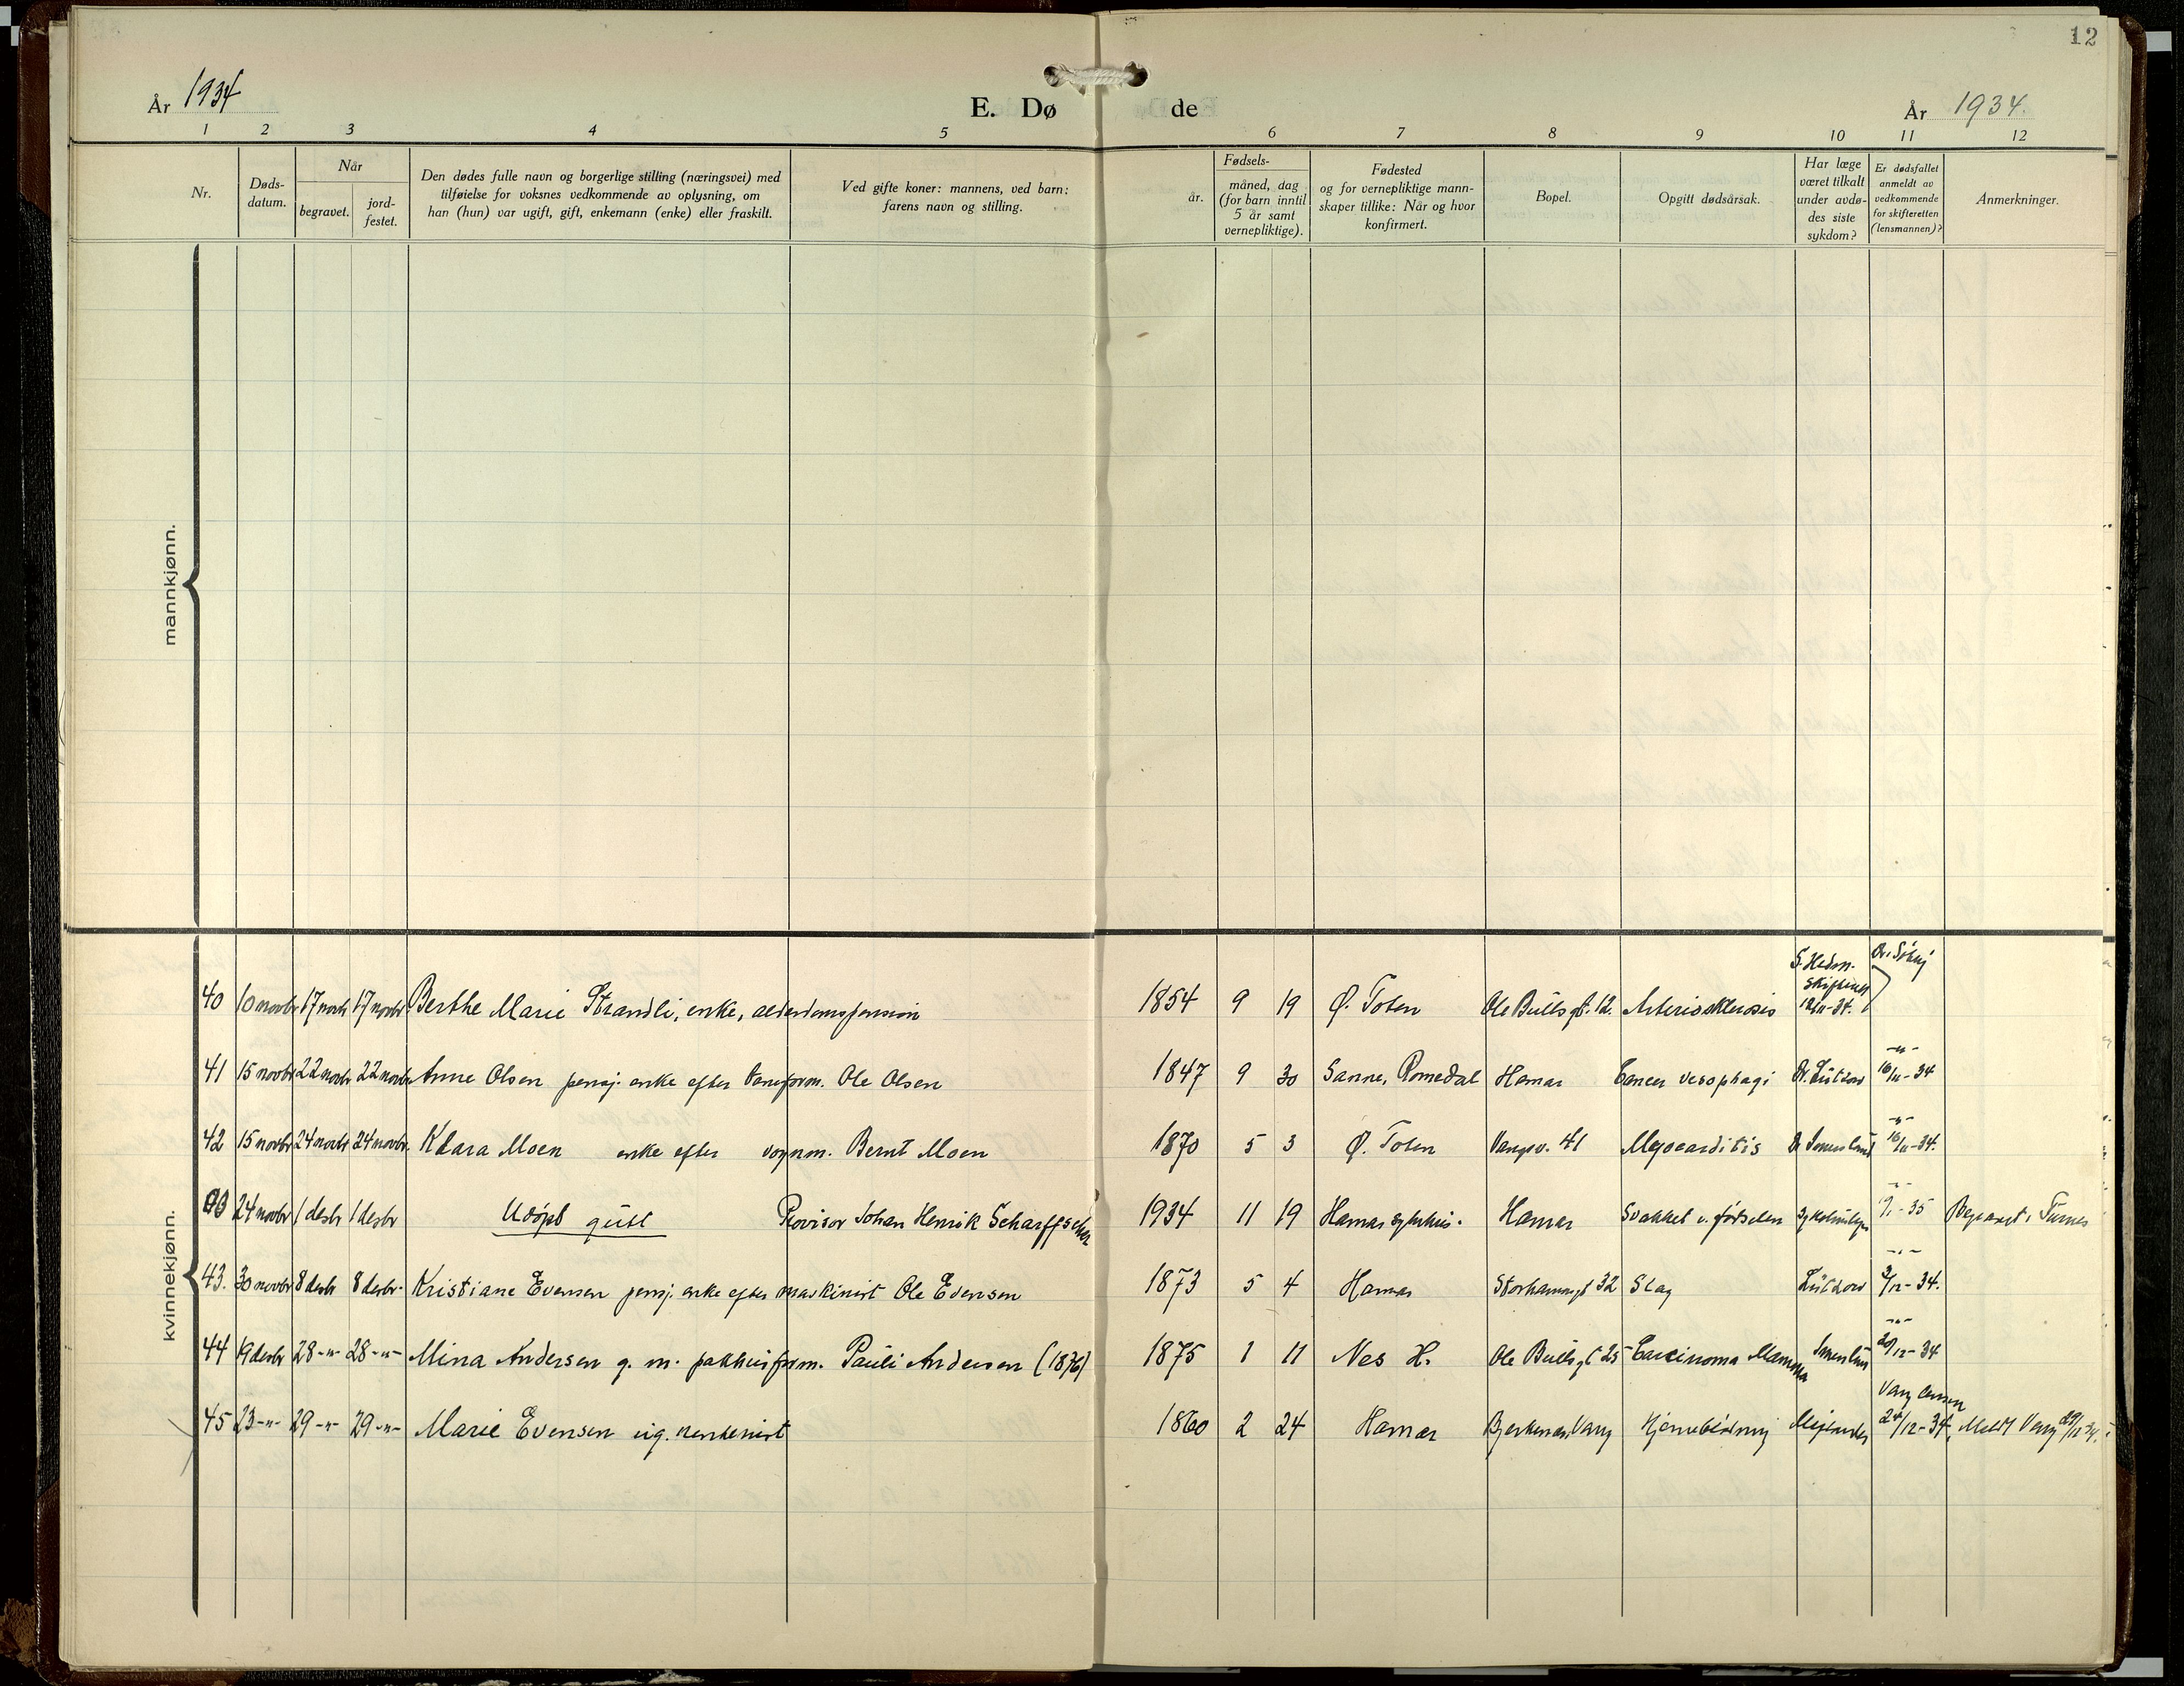 12
År 1934
E. Dø de
År 1934.
1 2 3 4 5 6 7 8 9 10 11 12
Nr.
Døds-
datum.
Når
begravet.
jord-
festet.
Den dødes fulle navn og borgerlige stilling (næringsvei) med
tilføielse for voksnes vedkommende av oplysning, om
han (hun) var ugift, gift, enkemann (enke) eller fraskilt.
Ved gifte koner: mannens, ved barn:
farens navn og stilling.
år.
Fødsels-
måned, dag
(for barn inntil
5 år samt
vernepliktige).
Fødested
og for vernepliktige mann-
skaper tillike: Når og hvor
konfirmert.
Bopel.
Opgitt dødsårsak.
Har læge
været tilkalt
under avdø-
des siste
sykdom?
Er dødsfallet
anmeldt av
vedkommende
for skifteretten
(lensmannen)?
Anmerkninger.
mannkjønn.
kvinnekjønn.
40 10 novbr 17 novbr 17 novbr Berthe Marie Strandli, enke, alderdomspension 1854 9 19 Ø. Toten Ole Bullsgt. 12. Arteriosklerosis S. Hedm. 12/11-34.
41 15 novbr 22 novbr 22 novbr Anne Olsen pensj. enke efter baneform. Ole Olsen 1847 9 30 Sanne, Romedal Hamar Cancer oesophagi Dr. Lützow -"- 16/11-34
42 15 novbr 24 novbr 24 novbr. Klara Moen enke efter vognm. Bernt Moen 1870 5 3 Ø. Toten Vangsv. 41 Myocarditis Dr -"- 16/11-34.
24 novbr 1 desbr 1 desbr Udøpt gutt Provisor Johan Henrik Scharffscher 1934 11 19 Hamar sykehus. Hamar Svakhet v. fødselen -35 Begravet i Furnes
43. 30 novbr 8 desbr 8 desbr. Kristiane Evensen pensj. enke efter maskinist Ole Evensen 1873 5 4 Hamar Storhamargt 32 Slag Lützow -"- 3/12-34.
44 19 desbr 28 -"- 28 -"- Mina Andersen g. m. pakhusform. Pauli Andersen (1876) 1875 1 11 Nes H. Ole Bullsgt 25 Carcinoma Mamma -"- 20/12-34
45 23 -"- 29 -"- 29 -"- Marie Evensen ug. rentenist 1860 2 24 Hamar Vang Hjerneblødning Vang 24/12-34. Meldt Vang 29/12 34.